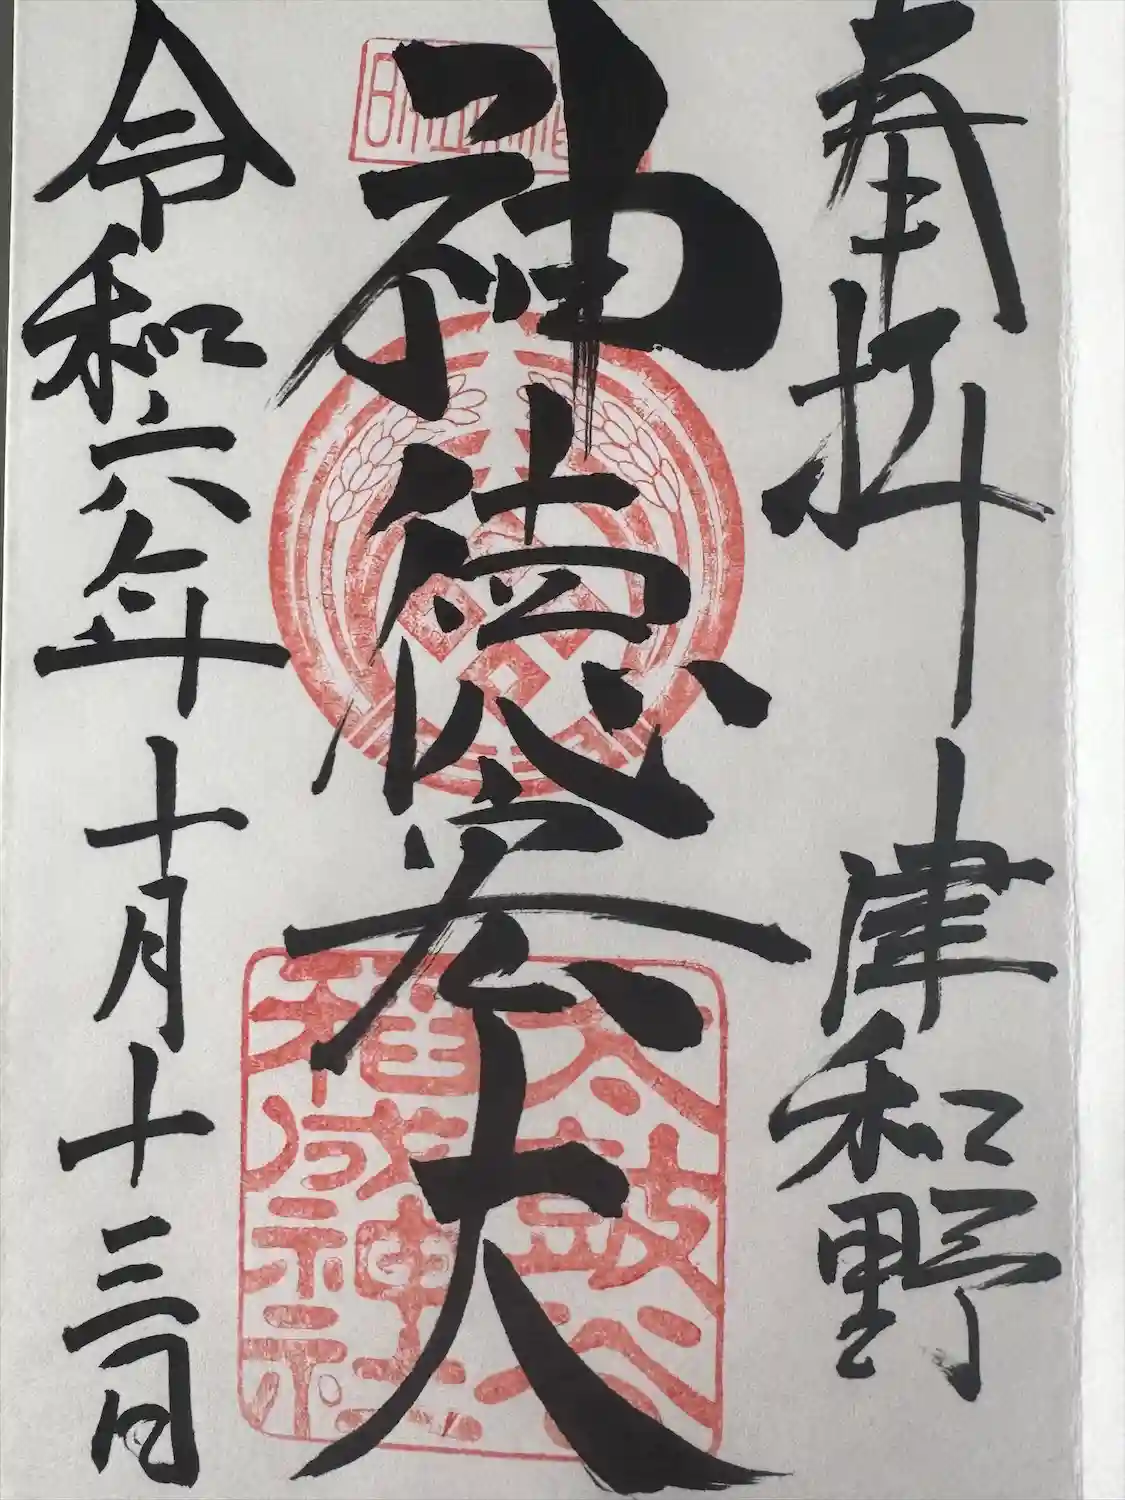 奉拝　津和野
神徳宏大
太皷谷稲成神社
令和六年十月十三日